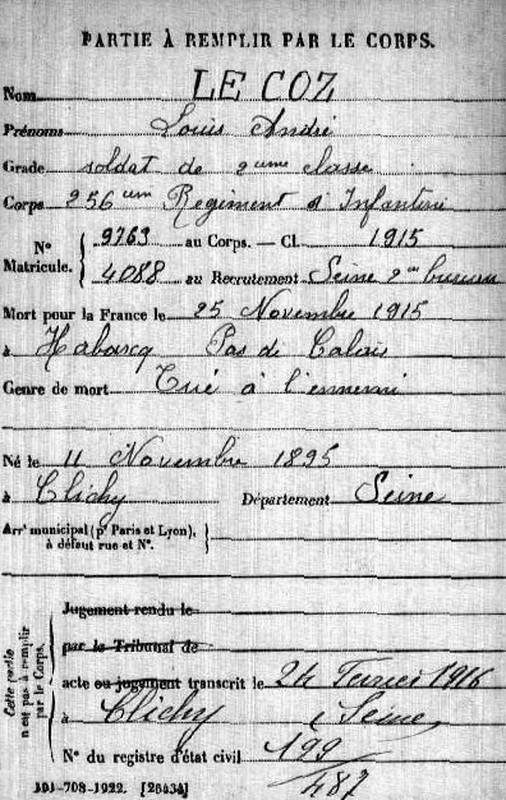 PARTIE À REMPLIR PAR LE CORPS.
Nom LE COZ
Prénoms Louis André
Grade soldat de 2eme classe
Corps 256eme Regiment d'Infanterie
N° Matricule. { 9763 au Corps. — Cl. 1915
4088 au Recrutement Seine 2eme bureau
Mort pour la France le 25 Novembre 1915
à Habarcq Pas de Calais
Genre de mort Tué à l'ennemi
Né le 11 Novembre 1895
à Clichy Département Seine
Arrt municipal (pr Paris et Lyon),
à défaut rue et N°. }
Cette partie n'est pas à remplir par le Corps. {
Jugement rendu le
par le Tribunal de
acte ou jugement transcrit le 24 Fevrier 1916
à Clichy (Seine)
N° du registre d'état civil 199
487
101-708-1922. [26434]